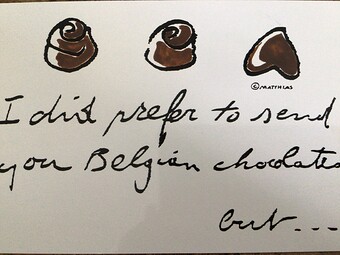 ©MATTHIAS
I did prefer to send
you Belgian chocolates
but...